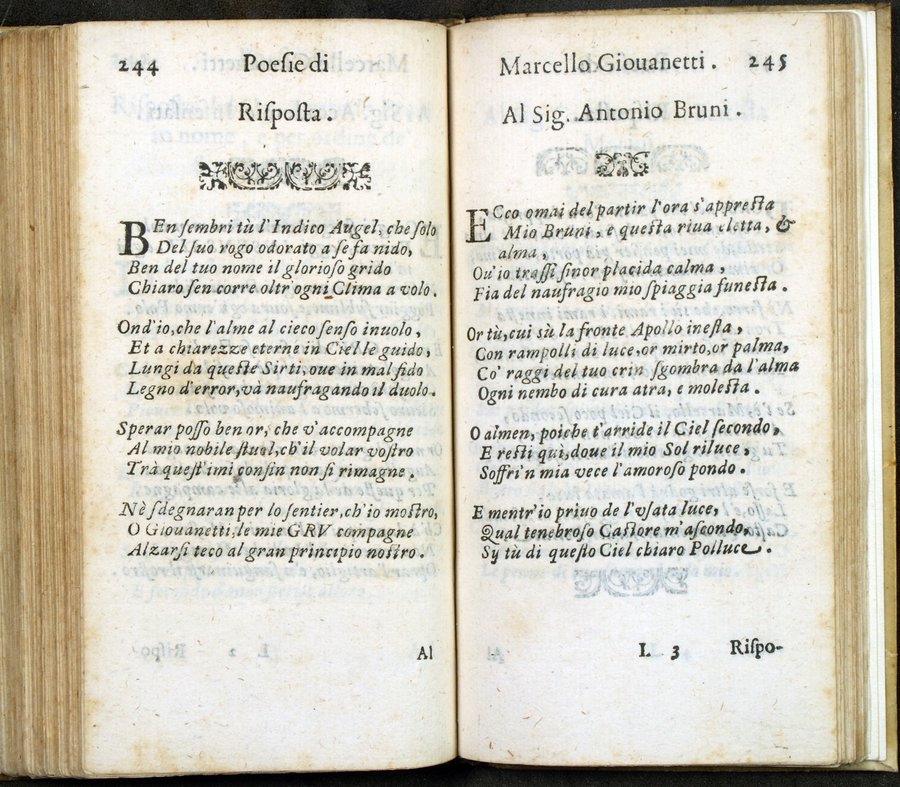 244 Poeſie di
Riſpoſta.
BEn ſembri tù l'Indico Augel, che ſolo
Del ſuo rogo odorato a ſe fa nido,
Ben del tuo nome il glorioſo grido
Chiaro ſen corre oltr'ogni Clima a volo.
Ond'io, che l'alme al cieco ſenſo inuolo,
Et a chiarezze eterne in Ciel le guido,
Lungi da queſte Sirti, oue in mal fido
Legno d'error, và naufragando il duolo.
Sperar poſſo ben or, che v'accompagne
Al mio nobile ſtuol, ch'il volar voſtro
Trà queſt'imi confin non ſi rimagne.
Nè ſdegnaran per lo ſentier, ch'io moſtro,
O Giouanetti, le mie GRV compagne
Alzarſi teco al gran principio noſtro.
Al
Marcello Giouanetti. 245
Al Sig. Antonio Bruni.
ECco omai del partir l'ora s'appreſta
Mio Bruni, e queſta riua eletta, &
alma,
Ou'io traſſi ſinor placida calma,
Fia del naufragio mio ſpiaggia funeſta.
Or tù, cui sù la fronte Apollo ineſta,
Con rampolli di luce, or mirto, or palma,
Co' raggi del tuo crin ſgombra da l'alma
Ogni nembo di cura atra, e moleſta.
O almen, poiche t'arride il Ciel ſecondo,
E reſti qui, doue il mio Sol riluce,
Soffri'n mia vece l'amoroſo pondo.
E mentr'io priuo de l'vſata luce,
Qual tenebroſo Caſtore m'aſcondo,
Sy tù di queſto Ciel chiaro Polluce.
L 3 Riſpo-